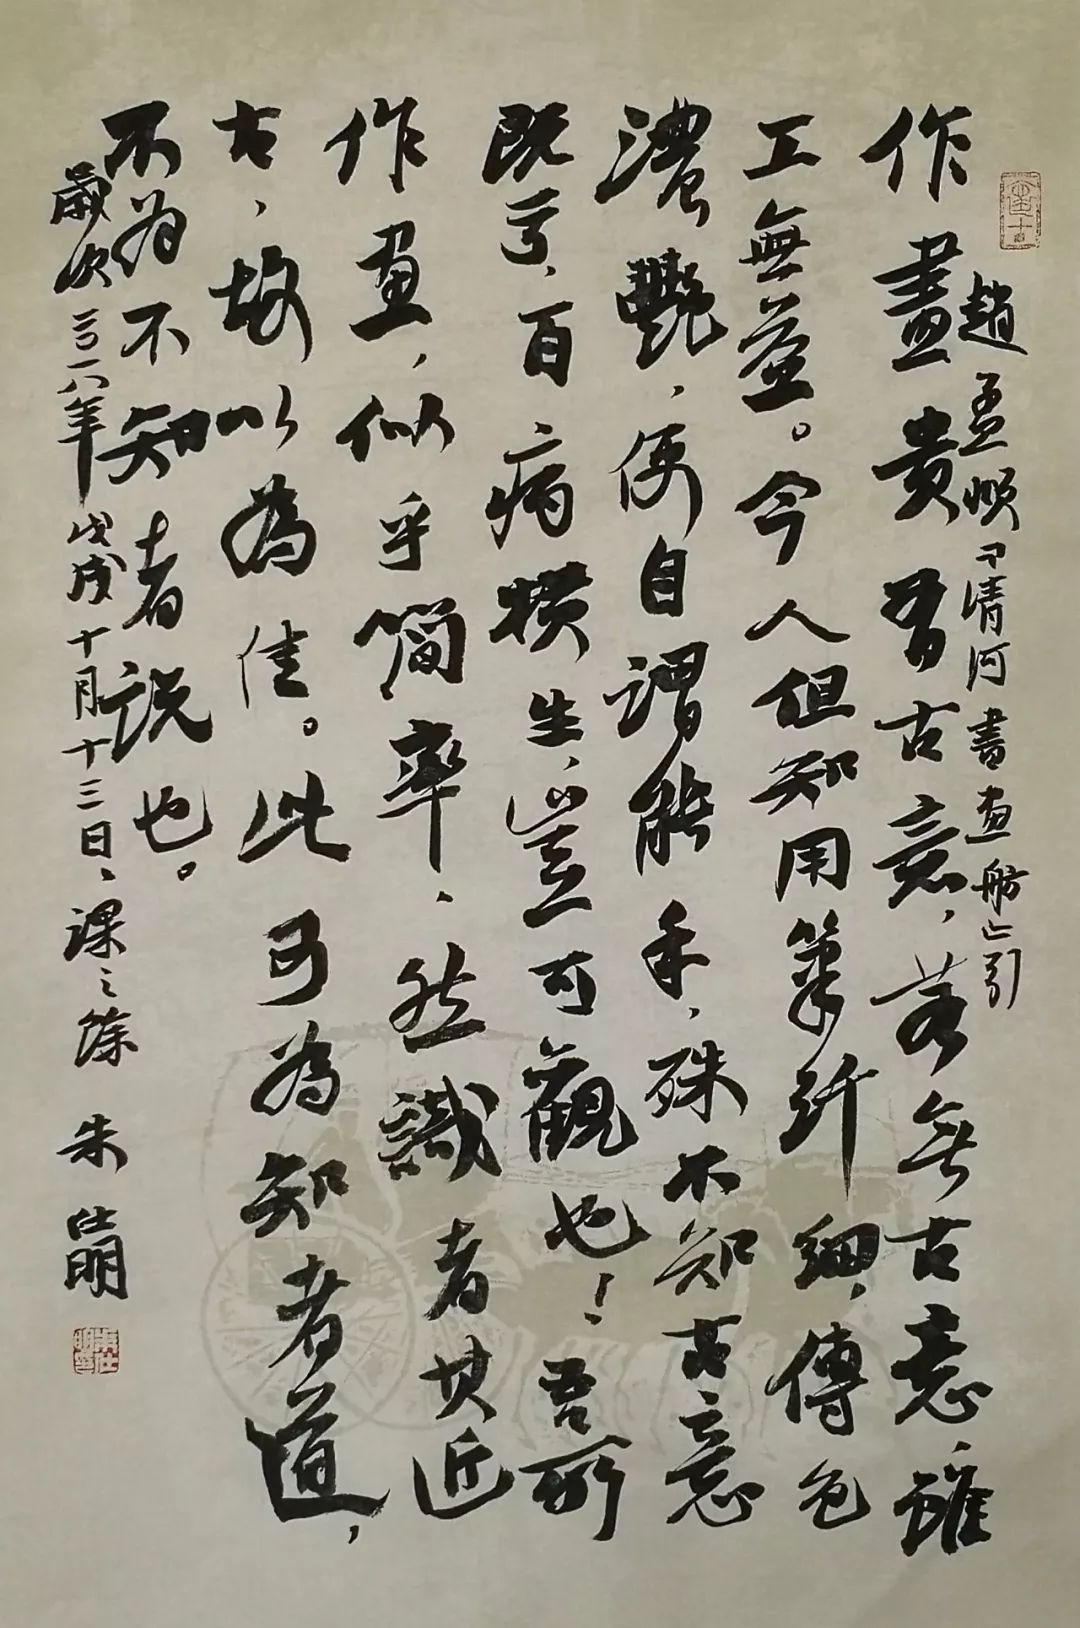 趙孟頫「清河書画舫」引
作畫貴有古意,若無古意,雖
工無益。今人但知用筆纤細,傳色
濃艷,便自謂能手,殊不知古意
既亏,百病横生,豈可觀也!吾所
作画,似乎簡率,然識者其近
古,故以為佳。此可為知者道,
不为不知者说也。
歲次二〇一八年戊戌十月十三日、課之馀 朱仕明
朱仕明印